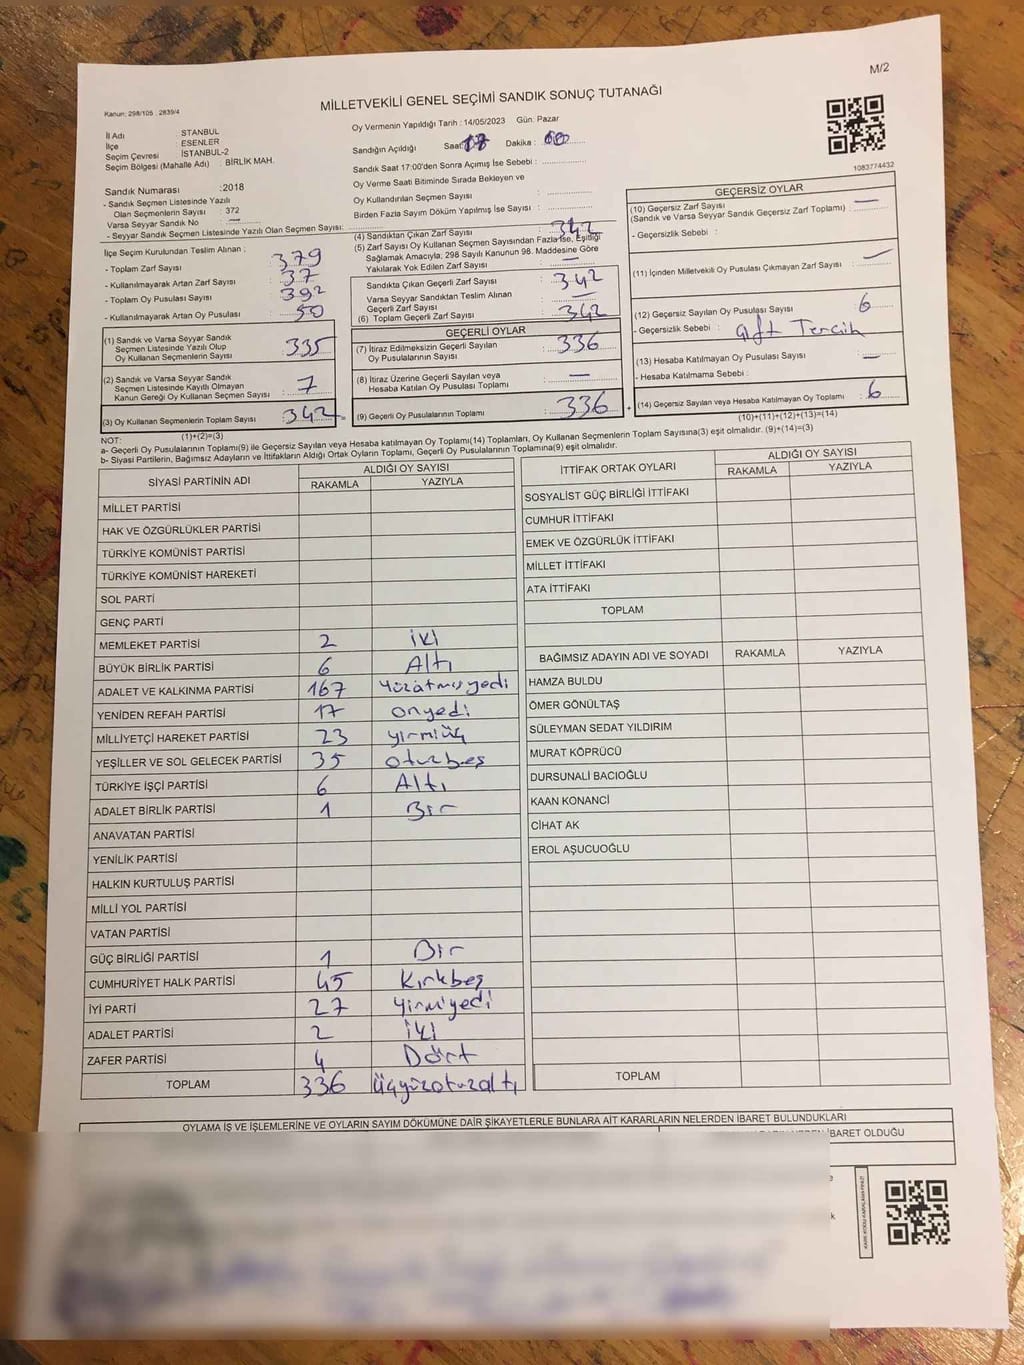 M/2
Kanun: 298/105 : 2839/4
MİLLETVEKİLİ GENEL SEÇİMİ SANDIK SONUÇ TUTANAĞI
İl Adı : STANBUL
İlçe : ESENLER
Seçim Çevresi : İSTANBUL-2
Seçim Bölgesi (Mahalle Adı) : BİRLİK MAH.
Sandık Numarası : 2018
- Sandık Seçmen Listesinde Yazılı
Olan Seçmenlerin Sayısı : 372
Varsa Seyyar Sandık No : —
- Seyyar Sandık Seçmen Listesinde Yazılı Olan Seçmen Sayısı:
İlçe Seçim Kurulundan Teslim Alınan :
- Toplam Zarf Sayısı : 379
- Kullanılmayarak Artan Zarf Sayısı : 37
- Toplam Oy Pusulası Sayısı : 392
- Kullanılmayarak Artan Oy Pusulası : 50
(1) Sandık ve Varsa Seyyar Sandık
Seçmen Listesinde Yazılı Olup
Oy Kullanan Seçmenlerin Sayısı : 335
(2) Sandık ve Varsa Seyyar Sandık
Seçmen Listesinde Kayıtlı Olmayan
Kanun Gereği Oy Kullanan Seçmen Sayısı : 7
(3) Oy Kullanan Seçmenlerin Toplam Sayısı : 342
(1)+(2)=(3)
Oy Vermenin Yapıldığı Tarih : 14/05/2023 Gün: Pazar
Sandığın Açıldığı Saat: 17 Dakika : 00
Sandık Saat 17:00'den Sonra Açımış İse Sebebi :
Oy Verme Saati Bitiminde Sırada Bekleyen ve
Oy Kullandırılan Seçmen Sayısı :
Birden Fazla Sayım Döküm Yapılmış İse Sayısı :
(4) Sandıktan Çıkan Zarf Sayısı : 342
(5) Zarf Sayısı Oy Kullanan Seçmen Sayısından Fazla İse, Eşitliği
Sağlamak Amacıyla; 298 Sayılı Kanunun 98. Maddesine Göre
Yakılarak Yok Edilen Zarf Sayısı : —
Sandıkta Çıkan Geçerli Zarf Sayısı : 342
Varsa Seyyar Sandıktan Teslim Alınan
Geçerli Zarf Sayısı : —
(6) Toplam Geçerli Zarf Sayısı : 342
GEÇERLİ OYLAR
(7) İtiraz Edilmeksizin Geçerli Sayılan
Oy Pusulalarının Sayısı : 336
(8) İtiraz Üzerine Geçerli Sayılan veya
Hesaba Katılan Oy Pusulası Toplamı : —
(9) Geçerli Oy Pusulalarının Toplamı : 336
1083774432
GEÇERSİZ OYLAR
(10) Geçersiz Zarf Sayısı
(Sandık ve Varsa Seyyar Sandık Geçersiz Zarf Toplamı) : —
- Geçersizlik Sebebi :
(11) İçinden Milletvekili Oy Pusulası Çıkmayan Zarf Sayısı : —
(12) Geçersiz Sayılan Oy Pusulası Sayısı : 6
- Geçersizlik Sebebi : Çift Tercih
(13) Hesaba Katılmayan Oy Pusulası Sayısı : —
- Hesaba Katılmama Sebebi :
(14) Geçersiz Sayılan veya Hesaba Katılmayan Oy Toplamı : 6
(10)+(11)+(12)+(13)=(14)
NOT:
a- Geçerli Oy Pusulalarının Toplamı(9) ile Geçersiz Sayılan veya Hesaba katılmayan Oy Toplamı(14) Toplamları, Oy Kullanan Seçmenlerin Toplam Sayısına(3) eşit olmalıdır. (9)+(14)=(3)
b- Siyasi Partilerin, Bağımsız Adayların ve İttifakların Aldığı Ortak Oyların Toplamı, Geçerli Oy Pusulalarının Toplamına(9) eşit olmalıdır.
SİYASİ PARTİNİN ADI ALDIĞI OY SAYISI
RAKAMLA YAZIYLA
MİLLET PARTİSİ
HAK VE ÖZGÜRLÜKLER PARTİSİ
TÜRKİYE KOMÜNİST PARTİSİ
TÜRKİYE KOMÜNİST HAREKETİ
SOL PARTİ
GENÇ PARTİ
MEMLEKET PARTİSİ 2 iki
BÜYÜK BİRLİK PARTİSİ 6 Altı
ADALET VE KALKINMA PARTİSİ 167 Yüzatmışyedi
YENİDEN REFAH PARTİSİ 17 onyedi
MİLLİYETÇİ HAREKET PARTİSİ 23 yirmiüç
YEŞİLLER VE SOL GELECEK PARTİSİ 35 otuzbeş
TÜRKİYE İŞÇİ PARTİSİ 6 Altı
ADALET BİRLİK PARTİSİ 1 Bir
ANAVATAN PARTİSİ
YENİLİK PARTİSİ
HALKIN KURTULUŞ PARTİSİ
MİLLİ YOL PARTİSİ
VATAN PARTİSİ
GÜÇ BİRLİĞİ PARTİSİ 1 Bir
CUMHURİYET HALK PARTİSİ 45 Kırkbeş
İYİ PARTİ 27 yirmiyedi
ADALET PARTİSİ 2 iki
ZAFER PARTİSİ 4 Dört
TOPLAM 336 üçyüzotuzaltı
İTTİFAK ORTAK OYLARI ALDIĞI OY SAYISI
RAKAMLA YAZIYLA
SOSYALİST GÜÇ BİRLİĞİ İTTİFAKI
CUMHUR İTTİFAKI
EMEK VE ÖZGÜRLÜK İTTİFAKI
MİLLET İTTİFAKI
ATA İTTİFAKI
TOPLAM
BAĞIMSIZ ADAYIN ADI VE SOYADI RAKAMLA YAZIYLA
HAMZA BULDU
ÖMER GÖNÜLTAŞ
SÜLEYMAN SEDAT YILDIRIM
MURAT KÖPRÜCÜ
DURSUNALİ BACIOĞLU
KAAN KONANCİ
CİHAT AK
EROL AŞUCUOĞLU
TOPLAM
OYLAMA İŞ VE İŞLEMLERİNE VE OYLARIN SAYIM DÖKÜMÜNE DAİR ŞİKAYETLERLE BUNLARA AİT KARARLARIN NELERDEN İBARET BULUNDUKLARI
İBARET OLDUĞU